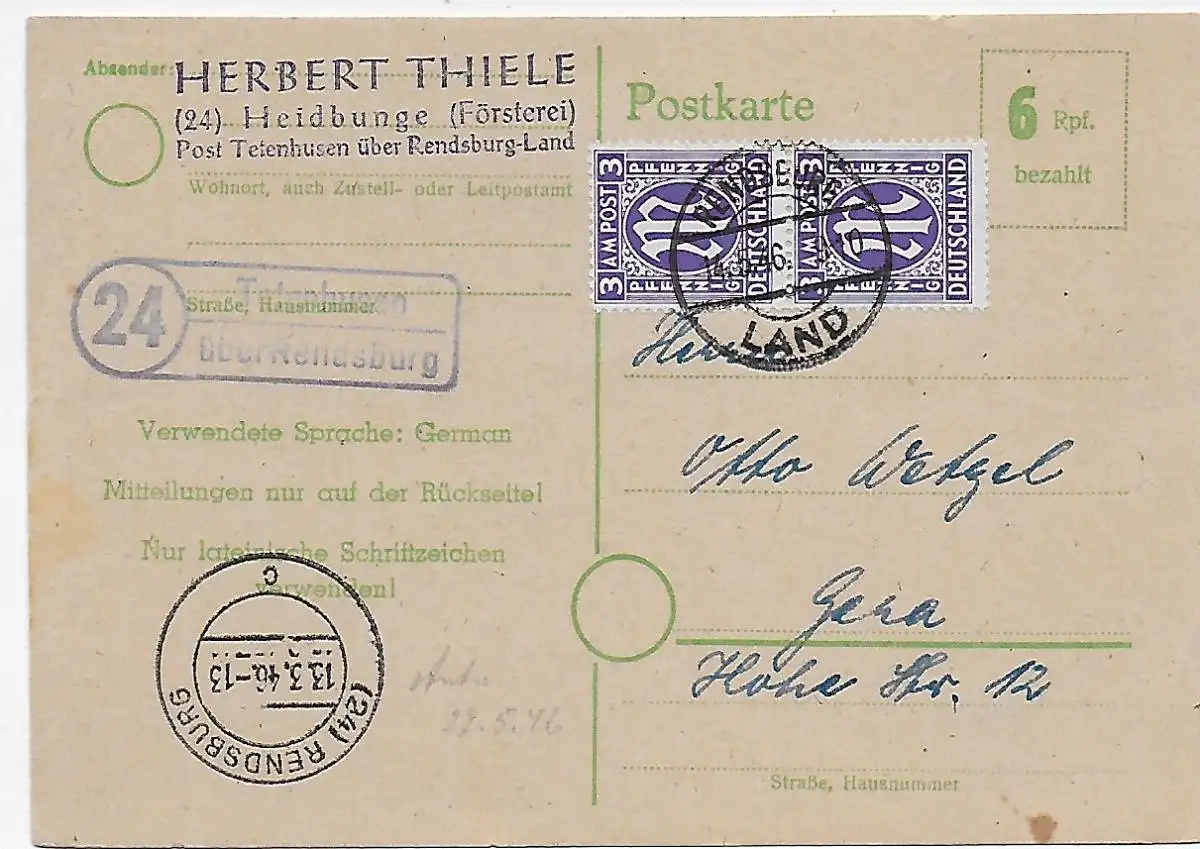 Absender: HERBERT THIELE
(24) Heidbunge (Försterei)
Post Tetenhusen über Rendsburg-Land
Wohnort, auch Zustell- oder Leitpostamt
24
Tetenhusen
über Rendsburg
Straße, Hausnummer
Verwendete Sprache: German
Mitteilungen nur auf der Rückseite!
Nur lateinische Schriftzeichen
verwenden!
c
13.3.46.-13
(24) RENDSBURG
22.5.46
Postkarte
6 Rpf.
bezahlt
3 PFENNIG 3
AM POST
PFENNIG
DEUTSCHLAND
3 PFENNIG 3
AM POST
PFENNIG
DEUTSCHLAND
RENDSBURG
LAND
Herrn
Otto Wetzel
Gera
Hohe Str. 12
Straße, Hausnummer